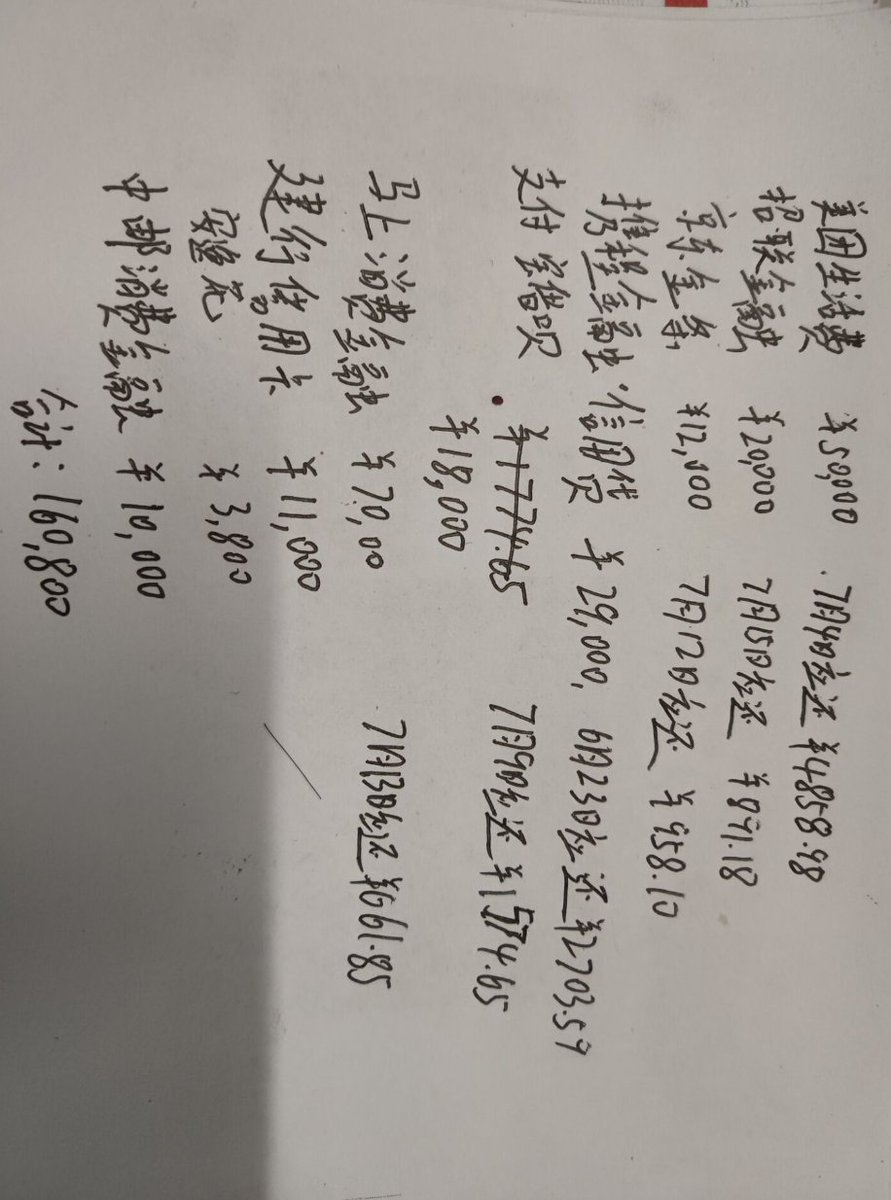 美团生活费 ¥50,000 7月9日应还 ¥4858.98
招联金融 ¥20,000 7月15日应还 ¥871.18
京东金条 ¥12,000 7月12日应还 ¥958.10
携程金融 信用贷 ¥29,000, 6月23日应还 ¥2703.59
支付宝借呗 ¥1774.65 7月9日应还 ¥1574.65
¥18,000
马上消费金融 ¥70,00 7月13日应还 ¥661.85
建行信用卡 ¥11,000
安逸花 ¥3,800
中邮消费金融 ¥10,000
合计: 160,800